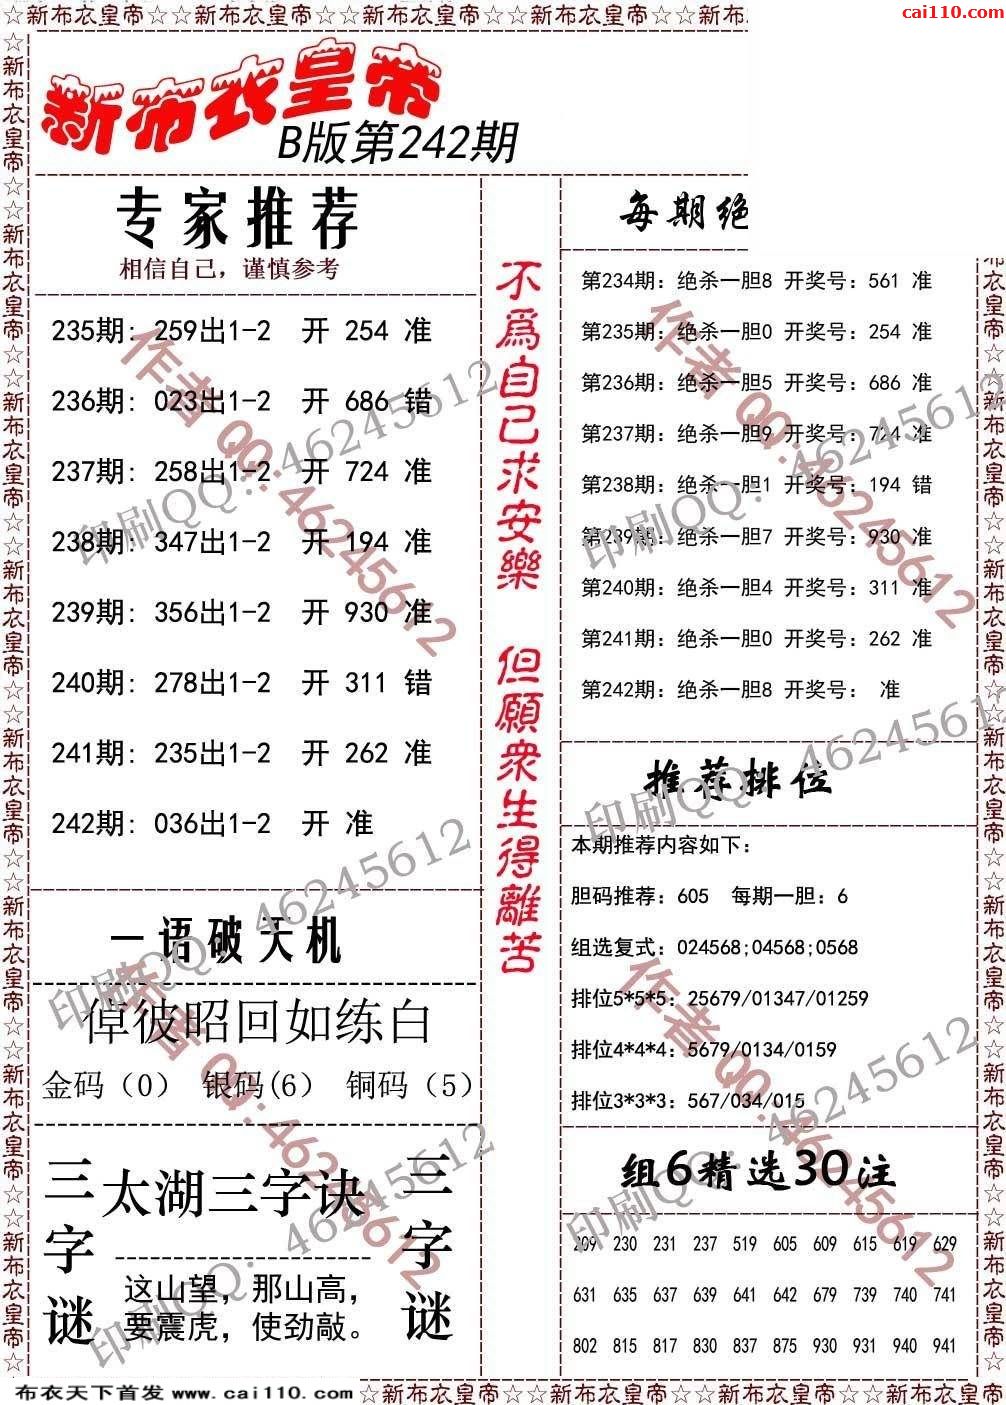 ☆新布衣皇帝☆☆新布衣皇帝☆☆新布衣皇帝☆☆新布衣皇帝☆☆新布
cai110.com
新布衣皇帝
B版第242期
专家推荐
相信自己，谨慎参考
235期: 259出1-2 开 254 准
236期: 023出1-2 开 686 错
237期: 258出1-2 开 724 准
238期: 347出1-2 开 194 准
239期: 356出1-2 开 930 准
240期: 278出1-2 开 311 错
241期: 235出1-2 开 262 准
242期: 036出1-2 开 准
一语破天机
倬彼昭回如练白
金码（0） 银码(6） 铜码（5）
三字谜
太湖三字诀
这山望，那山高，
要震虎，使劲敲。
三字谜
不爲自己求安樂 但願衆生得離苦
每期绝
第234期：绝杀一胆8 开奖号：561 准
第235期：绝杀一胆0 开奖号：254 准
第236期：绝杀一胆5 开奖号：686 准
第237期：绝杀一胆9 开奖号：724 准
第238期：绝杀一胆1 开奖号：194 错
第239期：绝杀一胆7 开奖号：930 准
第240期：绝杀一胆4 开奖号：311 准
第241期：绝杀一胆0 开奖号：262 准
第242期：绝杀一胆8 开奖号： 准
推荐排位
本期推荐内容如下：
胆码推荐：605 每期一胆：6
组选复式：024568;04568;0568
排位5*5*5：25679/01347/01259
排位4*4*4：5679/0134/0159
排位3*3*3：567/034/015
组6精选30注
209 230 231 237 519 605 609 615 619 629
631 635 637 639 641 642 679 739 740 741
802 815 817 830 837 875 930 931 940 941
作者 QQ:46245612
印刷QQ：46245612
作者 QQ:46245612
印刷QQ：46245612
印刷QQ：46245612
印刷QQ：46245612
作者 QQ:46245612
作者 QQ:46245612
印刷QQ：46245612
印刷QQ：46245612
布衣天下首发 www.cai110.com
☆新布衣皇帝☆☆新布衣皇帝☆☆新布衣皇帝☆☆新布衣皇帝☆